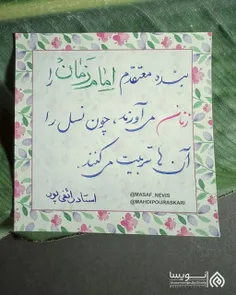 بنده معتقدم امام زمان را
زنان می‌آورند، چون نسل را
آن ها تربیت می‌کنند.
استاد رائفی پور
@MASAF_NEVIS
@MAHDIPOURASKARI